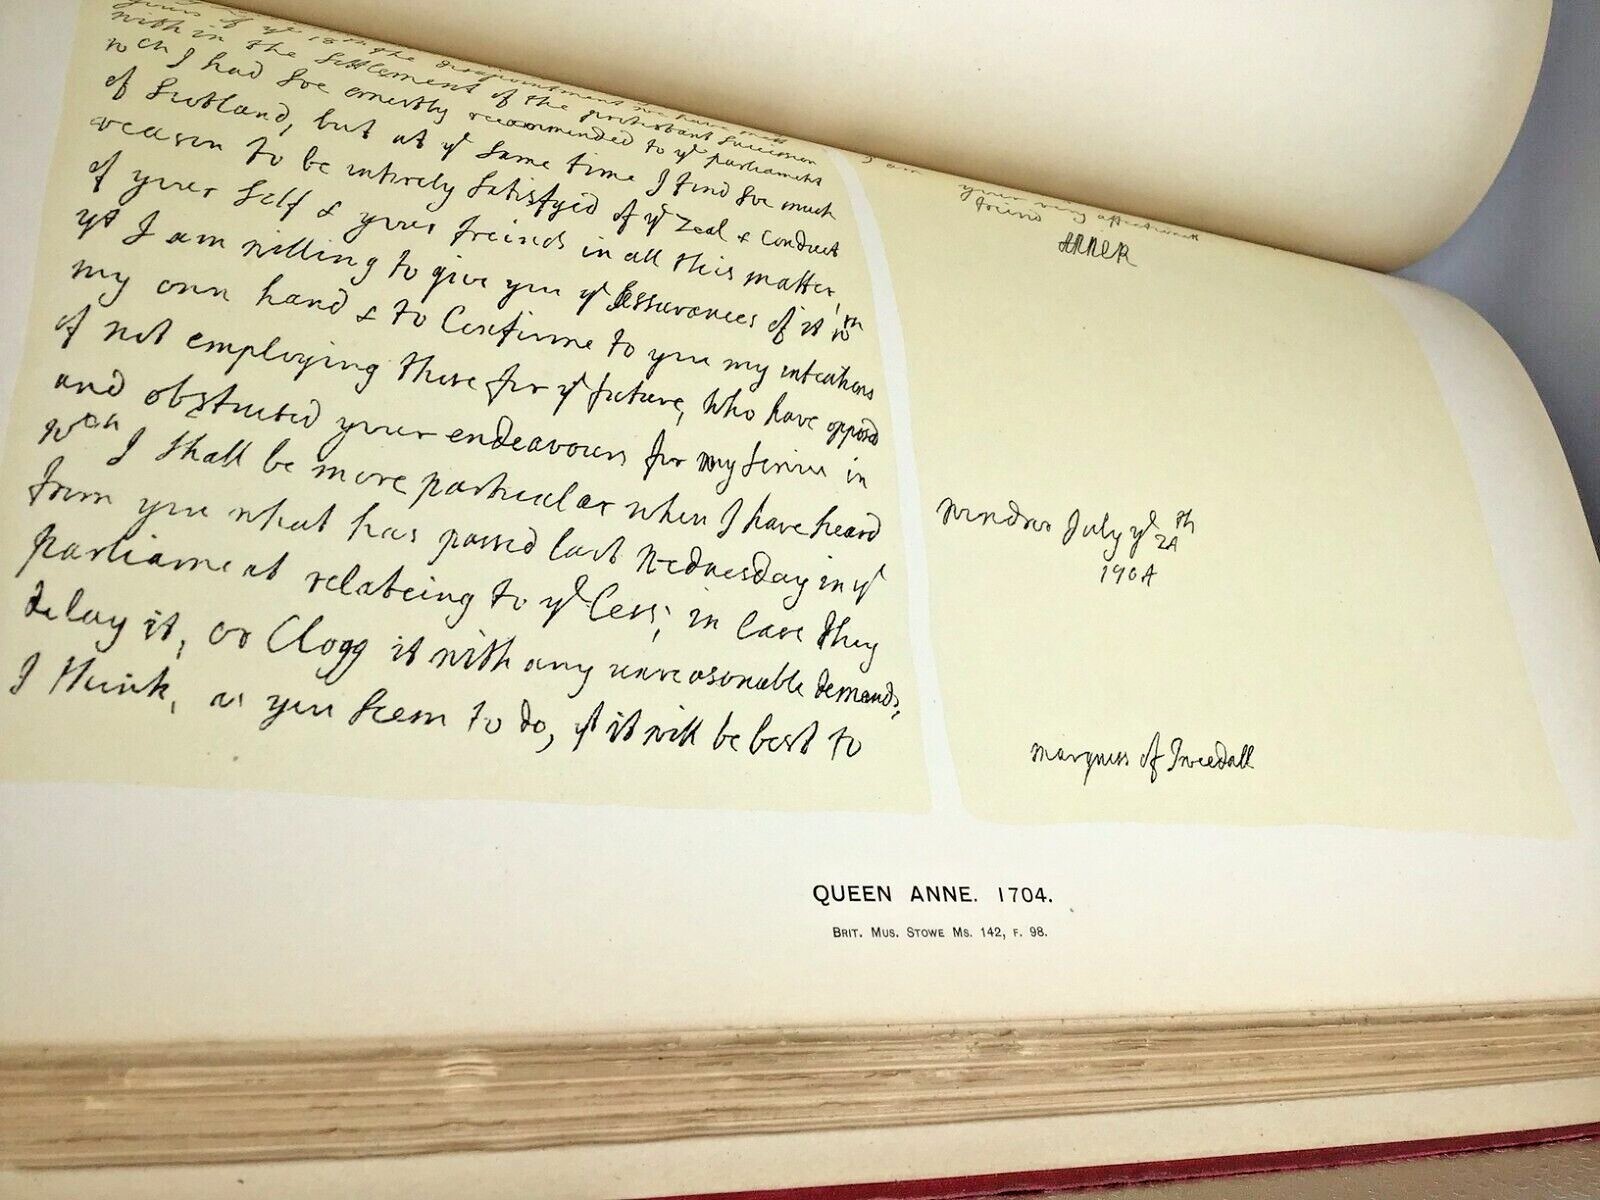 yours of yᵉ 18th the disapointment we have mett
with in the Settlement of the protestant Succession
wch I had soe ernestly recommended to yᵉ parliament
of Scotland, but at yᵉ same time I find soe much
reason to be intirely satisfyed of yᵉ Zeal & Conduct
of your self & your freinds in all this matter,
yᵗ I am willing to give you yᵉ Assurances of it in
my own hand & to Confirme to you my intentions
of not employing those for yᵉ future, who have oppos'd
and obstructed your endeavours for my servise in
wch I shall be more particular when I have heard
from you what has passed last Wednesday in yᵉ
parliament relateing to yᵉ Cess; in case they
delay it, or Clogg it with any unreasonable demands,
I think, as you seem to do, yᵗ it will be best to
I am
your very affectionett
freind
ANNE R
Windsor July yᵉ 24th
1704
Marquiss of Tweedall
QUEEN ANNE. 1704.
BRIT. MUS. STOWE MS. 142, F. 98.